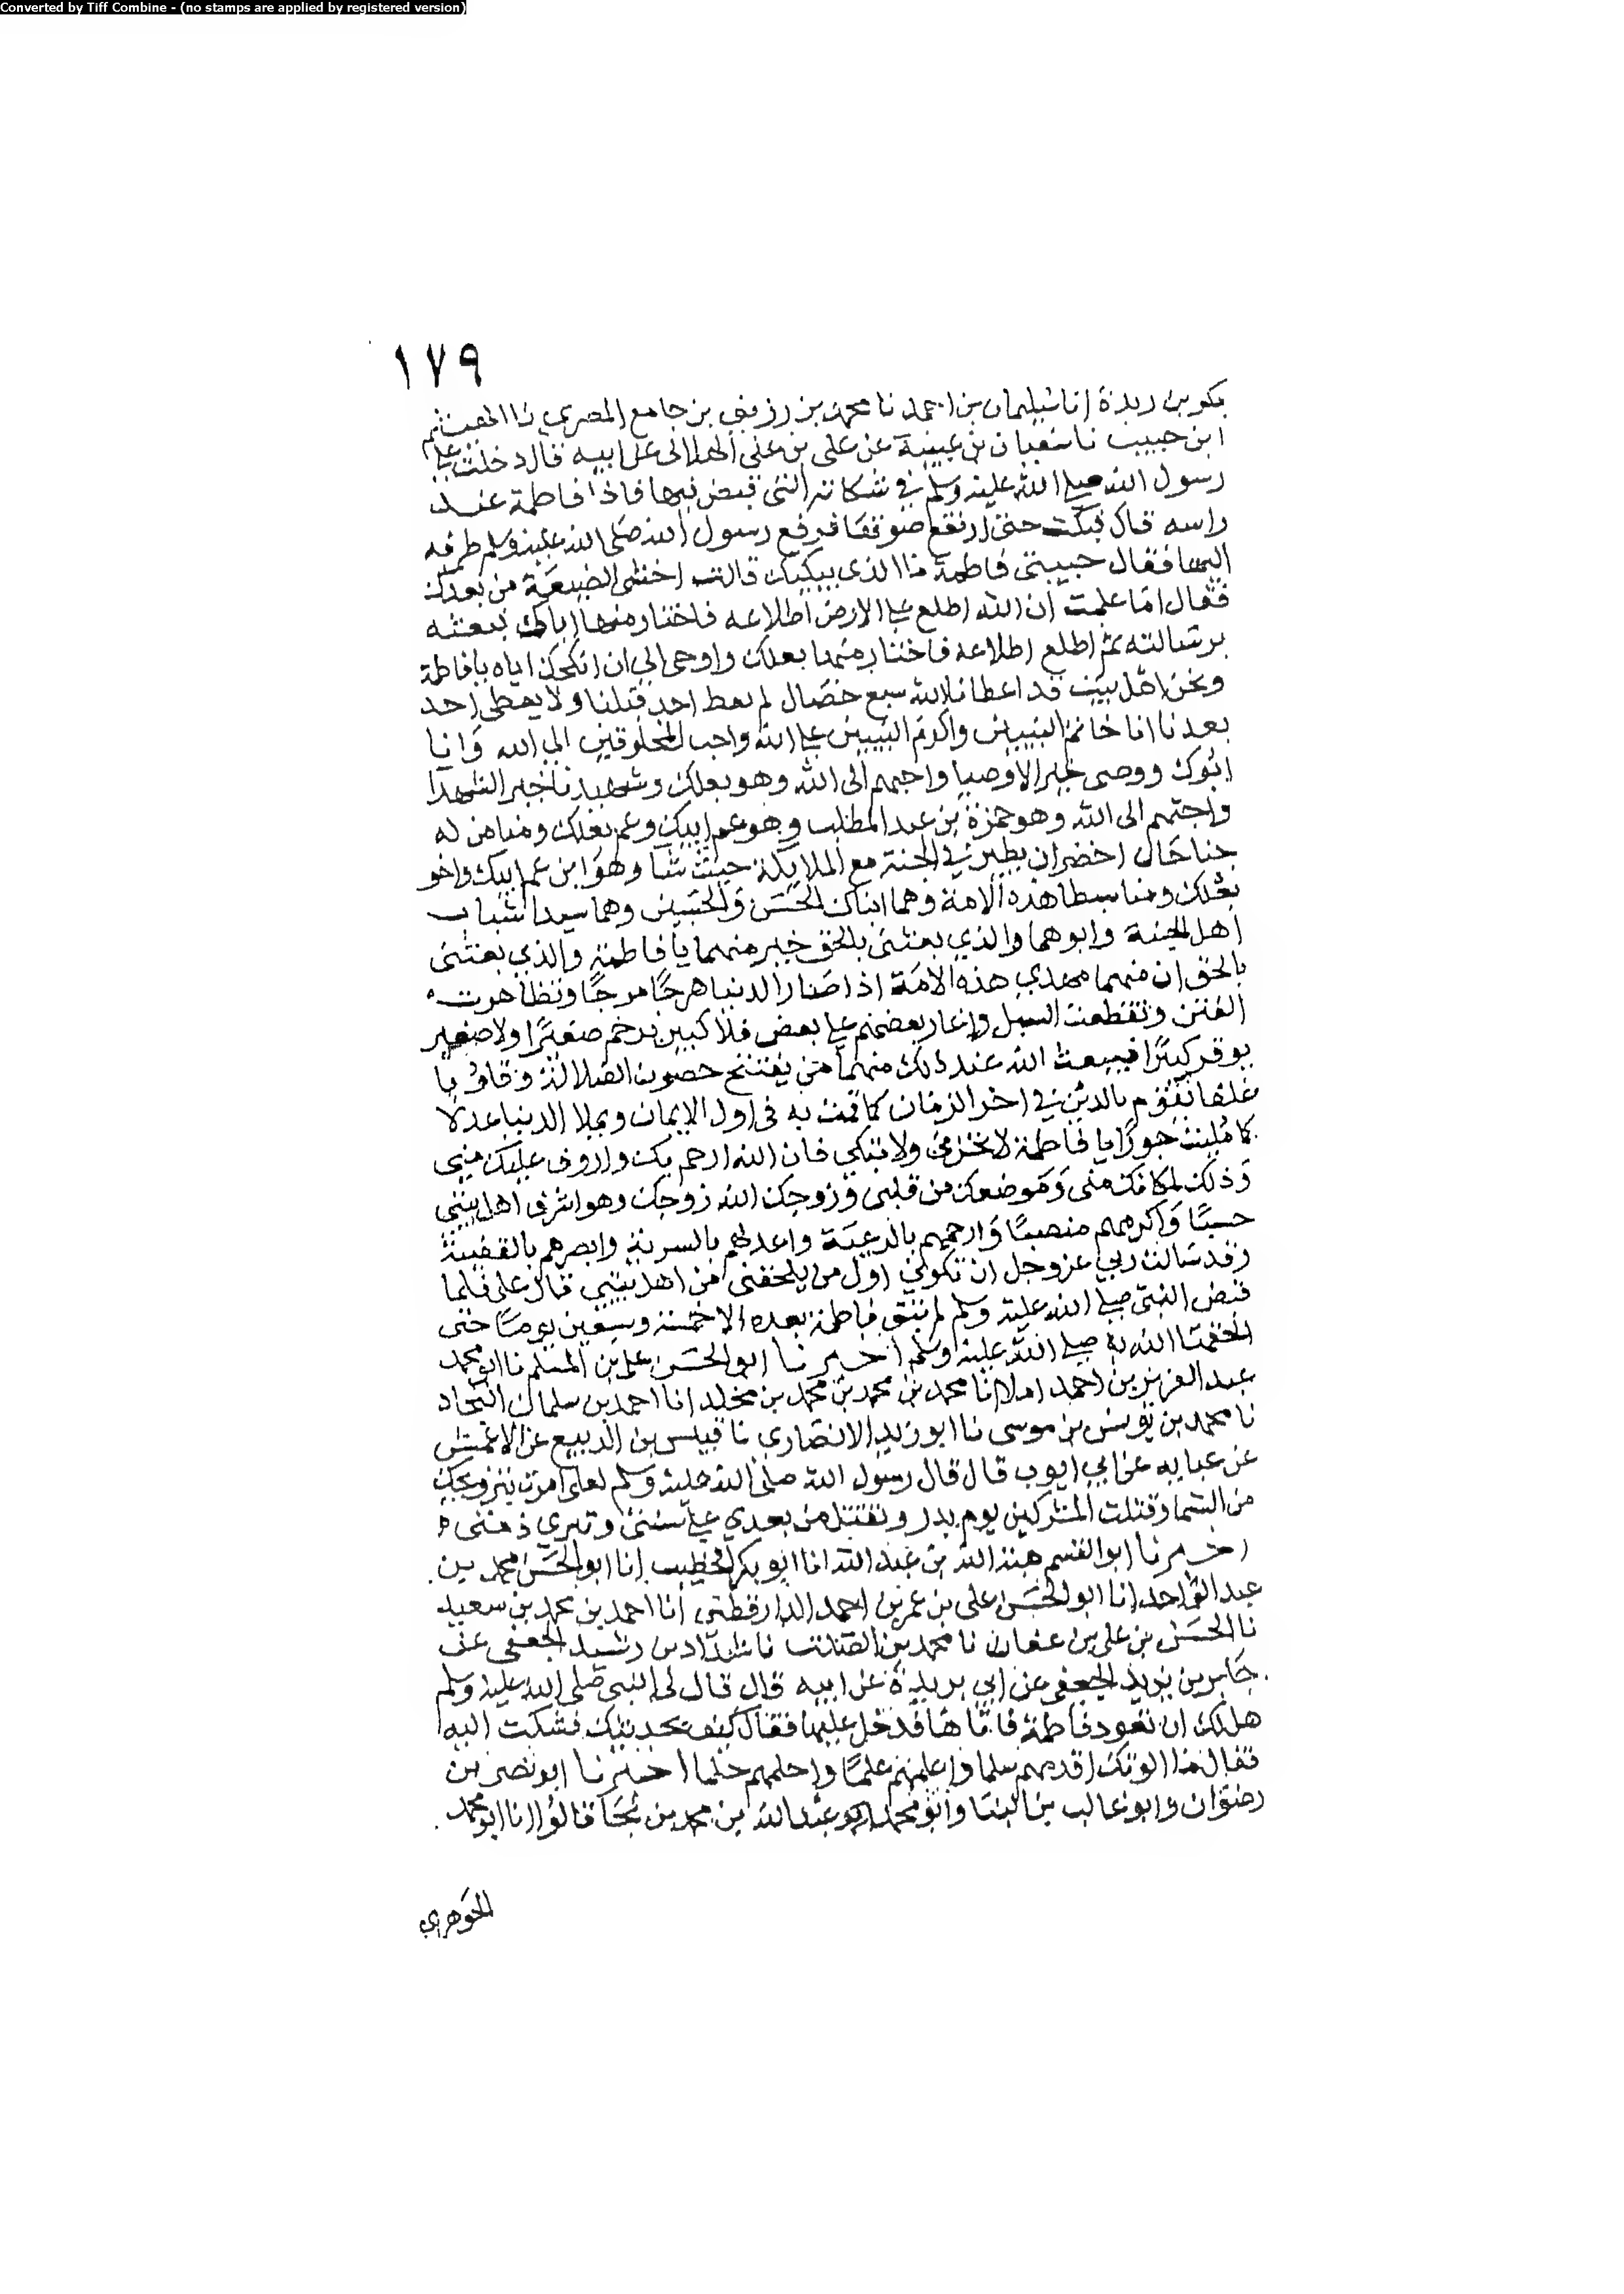 Converted by Tiff Combine - (no stamps are applied by registered version)
١٧٩
بكر بن ريذة انا سليمان بن احمد نا محمد بن رزيق بن جامع المصري نا الهيثم
ابن حبيب نا سفيان بن عيينة عن علي بن علي الهلالي عن ابيه قال دخلت علي
رسول الله صلي الله عليه وسلم في شكاته التي قبض فيها فاذا فاطمة عند
راسه قال فبكت حتى ارتفع صوتها فرفع رسول الله صلى الله عليه وسلم طرفه
اليها فقال حبيبتي فاطمة ما الذي يبكيك قالت اخشى الضيعة من بعدك
فقال اما علمت ان الله اطلع علي الارض اطلاعه فاختار منها اباك فبعثه
برسالته ثم اطلع اطلاعه فاختار منها بعلك واوحى الي ان انكحك اياه يا فاطمة
ونحن اهل بيت قد اعطانا الله سبع خصال لم يعط احد قبلنا ولا يعطى احد
بعدنا انا خاتم النبيين واكرم النبيين علي الله واحب المخلوقين الى الله وانا
ابوك ووصي خير الاوصيا واحبهم الى الله وهو بعلك وشهيدنا خير الشهدا
واحبهم الى الله وهو حمزة بن عبد المطلب وهو عم ابيك وعم بعلك ومنا من له
جناحان اخضران يطير في الجنة مع الملايكة حيث شا وهو ابن عم ابيك واخو
بعلك ومنا سبطا هذه الامة وهما ابناك الحسن والحسين وهما سيدا شباب
اهل الجنة وابوهما والذي بعثني بالحق خير منهما يا فاطمة والذي بعثني
بالحق ان منهما مهدي هذه الامة اذا صار الدنيا هرجا مرجا وتظاهرت
الفتن وتقطعت السبل واغار بعضهم علي بعض فلا كبير يرحم صغيرا ولا صغير
يوقر كبيرا فيبعث الله عند ذلك منهما من يفتتح حصون الضلالة وقلوبا
غلفا يقوم بالدين في اخر الزمان كما قمت به في اول الايمان ويملا الدنيا عدلا
كما مليت جورا يا فاطمة لا تحزني ولا تبكي فان الله ارحم بك واروف عليك مني
وذلك لمكانك مني وموضعك من قلبي وزوجك الله زوجك وهو اشرف اهل بيتي
حسبا واكرمهم منصبا وارحمهم بالرعية واعدلهم بالسوية وابصرهم بالقضية
وقد سالت ربي عز وجل ان تكوني اول من يلحقني من اهل بيتي قال علي فلما
قبض النبي صلي الله عليه وسلم لم تبق فاطمة بعده الا خمسة وسبعين يوما حتى
الحقها الله به صلي الله عليه وسلم اخبرنا ابو الحسن علي بن المسلم نا ابو محمد
عبد العزيز بن احمد املا انا محمد بن محمد بن محمد بن مخلد انا احمد بن سلمان النجاد
نا محمد بن يونس بن موسى نا ابو زيد الانصاري نا قيس بن الربيع عن الاعمش
عن عبايه عن ابي ايوب قال قال رسول الله صلى الله عليه وسلم لعلي امرت بتزويجك
من السما وقتلت المشركين يوم بدر وتقتل من بعدي علي سنتي وتبري ذمتي
اخبرنا ابو القسم هبة الله بن عبد الله انا ابو بكر الخطيب انا ابو الحسن محمد بن
عبد الواحد انا ابو الحسن علي بن عمر بن احمد الدارقطني انا احمد بن محمد بن سعيد
نا الحسن بن علي بن عفان نا محمد بن الصلت نا شداد بن رشيد الجعفي عن
جابر بن يزيد الجعفي عن ابي بريدة عن ابيه قال قال لي النبي صلى الله عليه وسلم
هل لك ان تعود فاطمة فاتاها فدخل عليها فقال كيف تجدينك فشكت اليه
فقال ما الوتك اقدمهم سلما واعلمهم علما واحلمهم حلما اخبرنا ابو نصر بن
رضوان وابو غالب بن البنا وابو محمد عبد الله بن محمد بن نجا قالوا انا ابو محمد
الجوهري